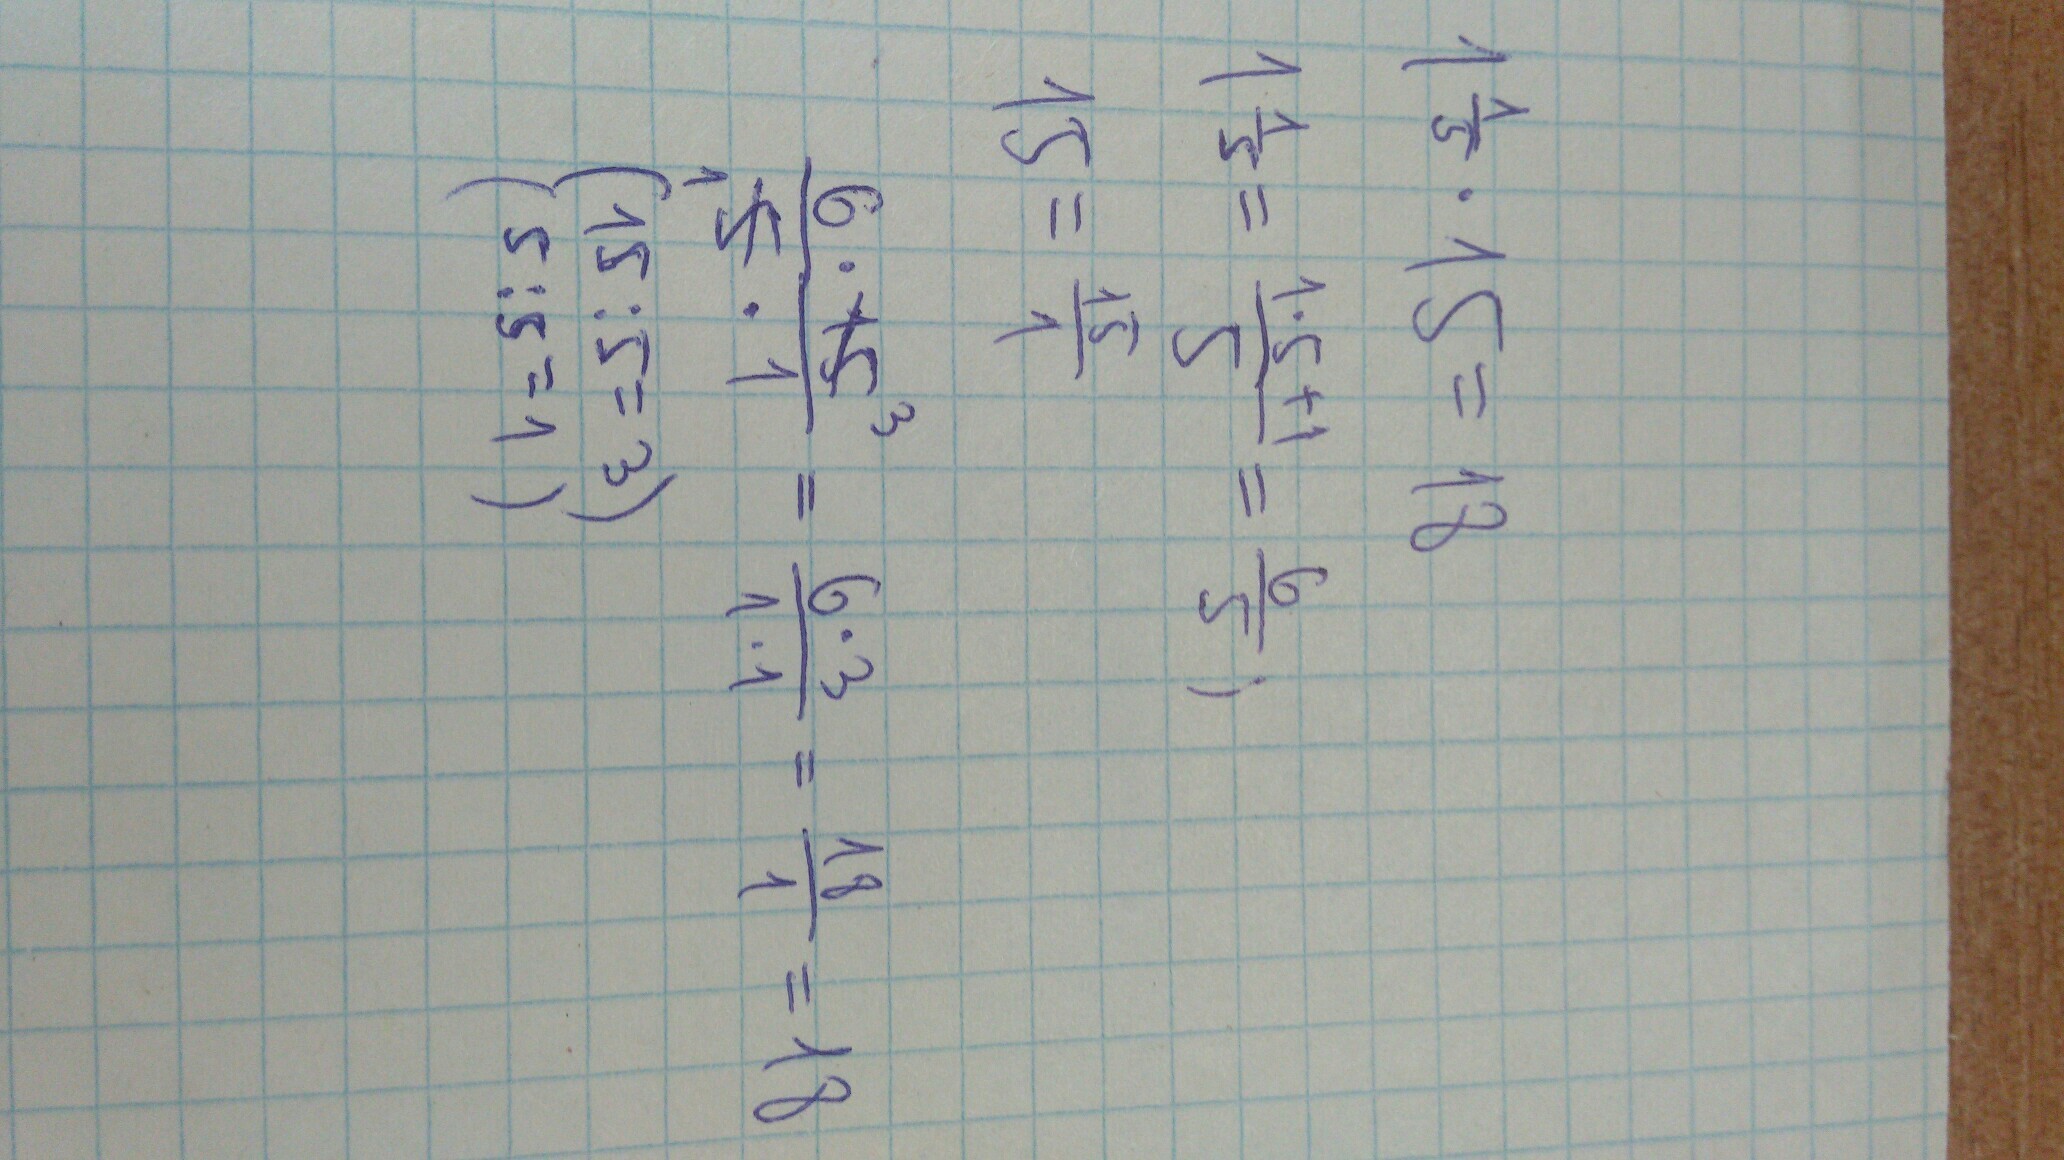 1 1/5 · 15 = 18
1 1/5 = 1·5+1/5 = 6/5 )
15 = 15/1
6 · 15 3 / 1 5 · 1 = 6·3/1·1 = 18/1 = 18
(15:5=3)
(5:5=1)